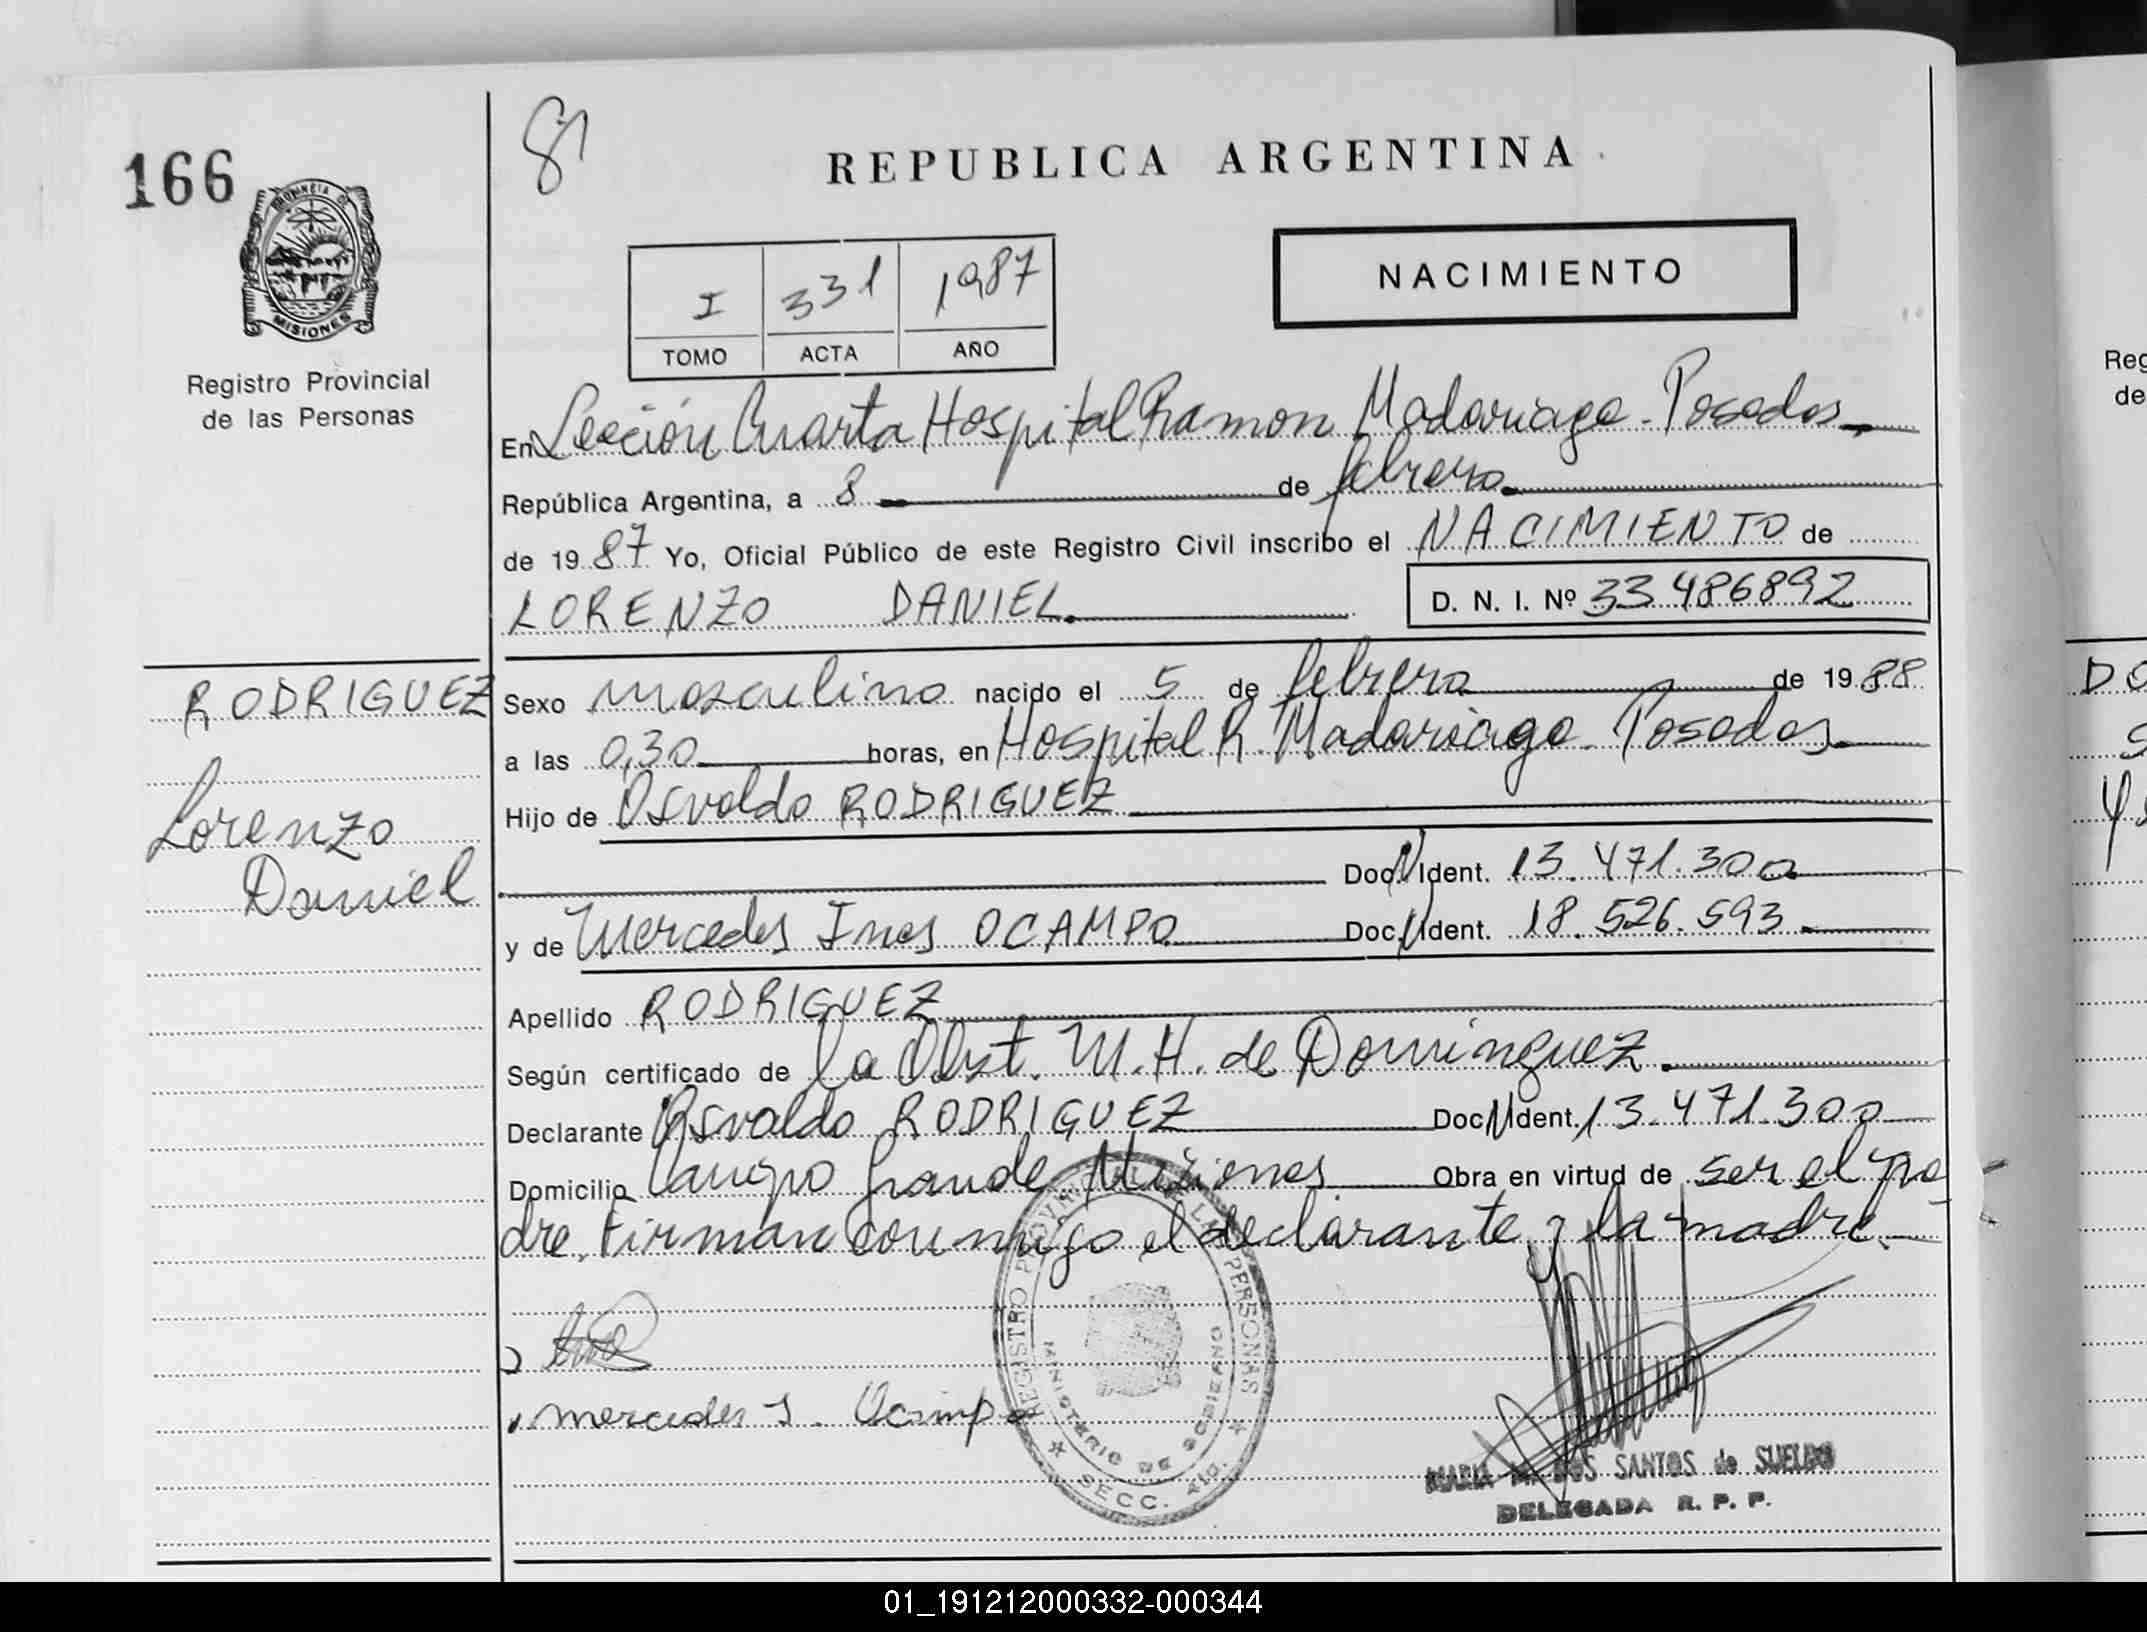 166
PROVINCIA DE
MISIONES
Registro Provincial
de las Personas
REPUBLICA ARGENTINA
NACIMIENTO
I 331 1987
TOMO ACTA AÑO
En Sección Cuarta Hospital Ramon Madariaga - Posadas
República Argentina, a 8 de febrero
de 19 87 Yo, Oficial Público de este Registro Civil inscribo el NACIMIENTO de
LORENZO DANIEL D. N. I. Nº 33.486892
RODRIGUEZ
Lorenzo
Daniel
Sexo masculino nacido el 5 de febrero de 19 88
a las 0,30 horas, en Hospital R. Madariaga - Posadas
Hijo de Osvaldo RODRIGUEZ
Doc. N Ident. 13.471.300
y de Mercedes Ines OCAMPO Doc. N Ident. 18.526.593
Apellido RODRIGUEZ
Según certificado de la Obst. M.H. de Dominguez.
Declarante Osvaldo RODRIGUEZ Doc. N Ident. 13.471.300
Domicilio Campo Grande Misiones Obra en virtud de ser el pa
dre. Firman conmigo el declarante y la madre.
mercedes I. Ocampo
REGISTRO PROVINCIAL DE LAS PERSONAS
MINISTERIO DE GOBIERNO
SECC. 4ta.
MARIA M. DOS SANTOS de SUELDO
DELEGADA R. P. P.
01_191212000332-000344